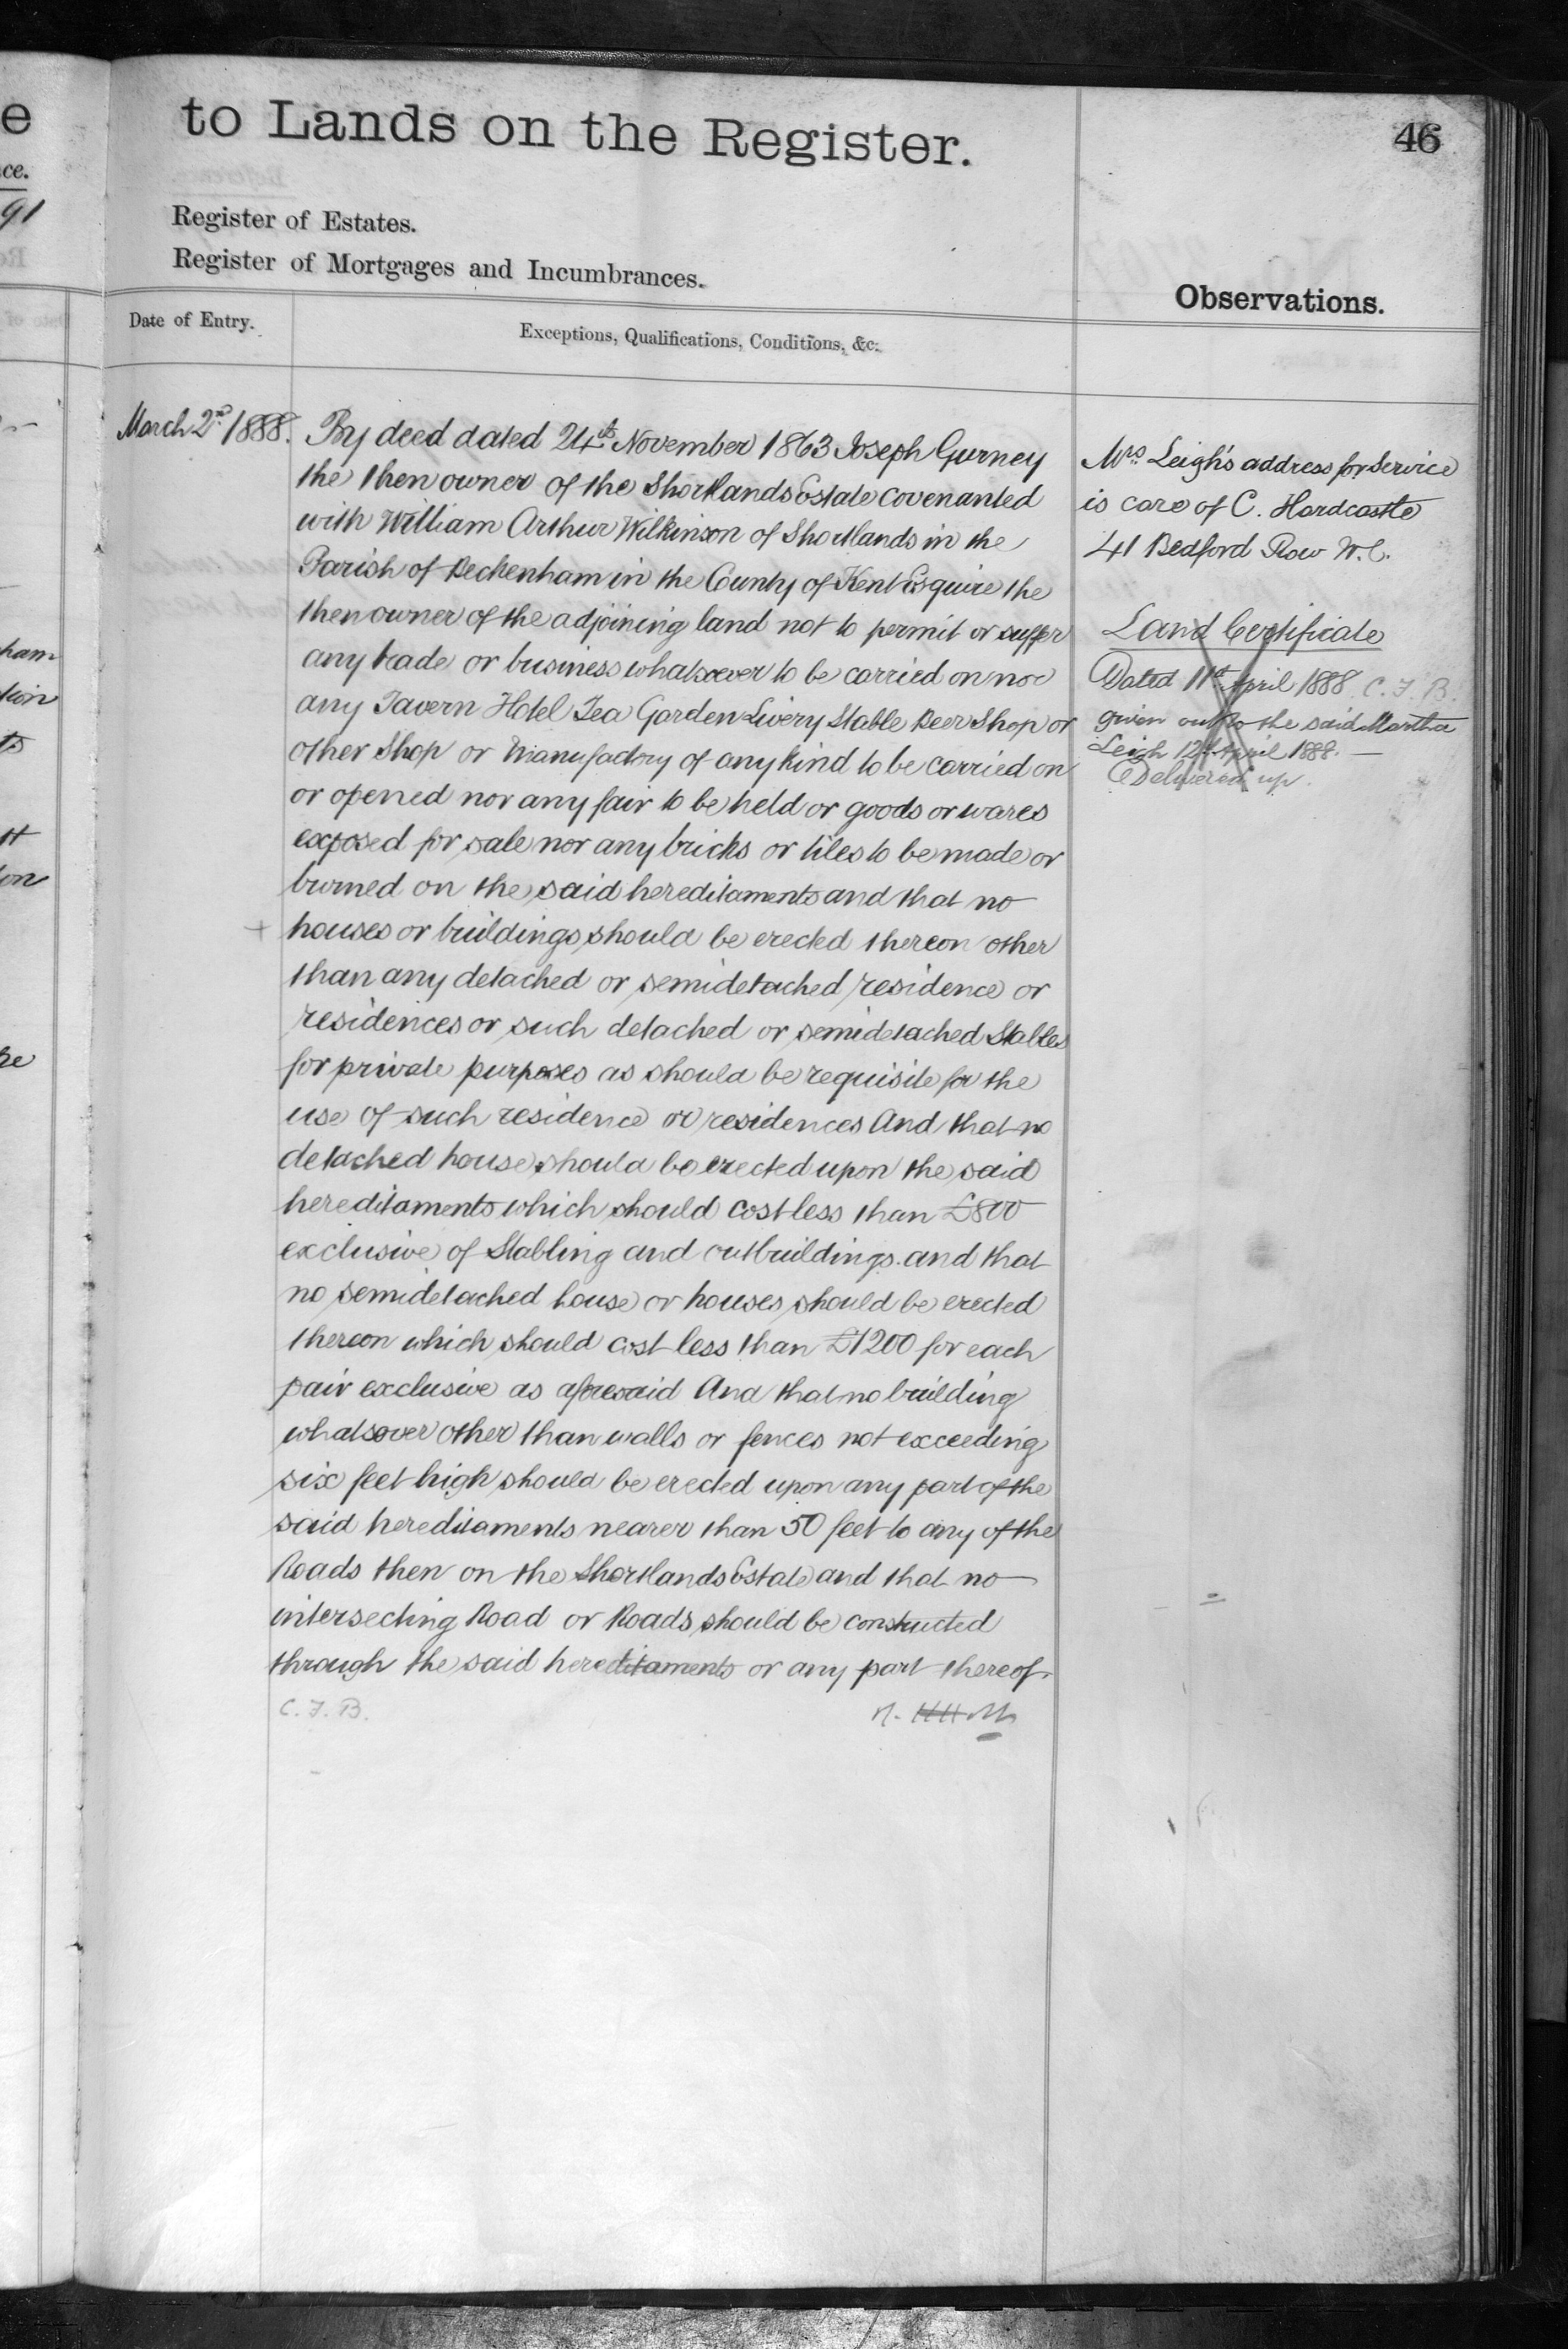 e
to Lands on the Register.
46
ce.
91
Register of Estates.
Register of Mortgages and Incumbrances.
Observations.
Date of Entry.
Exceptions, Qualifications, Conditions, &c.
March 2nd 1888.
By deed dated 24th November 1863 Joseph Gurney
the then owner of the Shortlands Estate covenanted
with William Arthur Wilkinson of Shortlands in the
Parish of Beckenham in the County of Kent Esquire the
then owner of the adjoining land not to permit or suffer
any trade or business whatsoever to be carried on nor
any Tavern Hotel Tea Garden Livery Stable Beer Shop or
other Shop or Manufactory of any kind to be carried on
or opened nor any fair to be held or goods or wares
exposed for sale nor any bricks or tiles to be made or
burned on the said hereditaments and that no
houses or buildings should be erected thereon other
than any detached or semidetached residence or
residences or such detached or semidetached Stables
for private purposes as should be requisite for the
use of such residence or residences And that no
detached house should be erected upon the said
hereditaments which should cost less than £800
exclusive of Stabling and outbuildings. and that
no semidetached house or houses should be erected
thereon which should cost less than £1200 for each
pair exclusive as aforesaid And that no building
whatsoever other than walls or fences not exceeding
six feet high should be erected upon any part of the
said hereditaments nearer than 50 feet to any of the
Roads then on the Shortlands Estate and that no
intersecting Road or Roads should be constructed
through the said hereditaments or any part thereof.
C. F. B.
Mrs Leigh's address for Service
is care of C. Hardcastle
41 Bedford Row W.C.
Land Certificate
Dated 11th April 1888. C. F. B.
given out to the said Martha
Leigh 12th April 1888. —
Delivered up.
ham